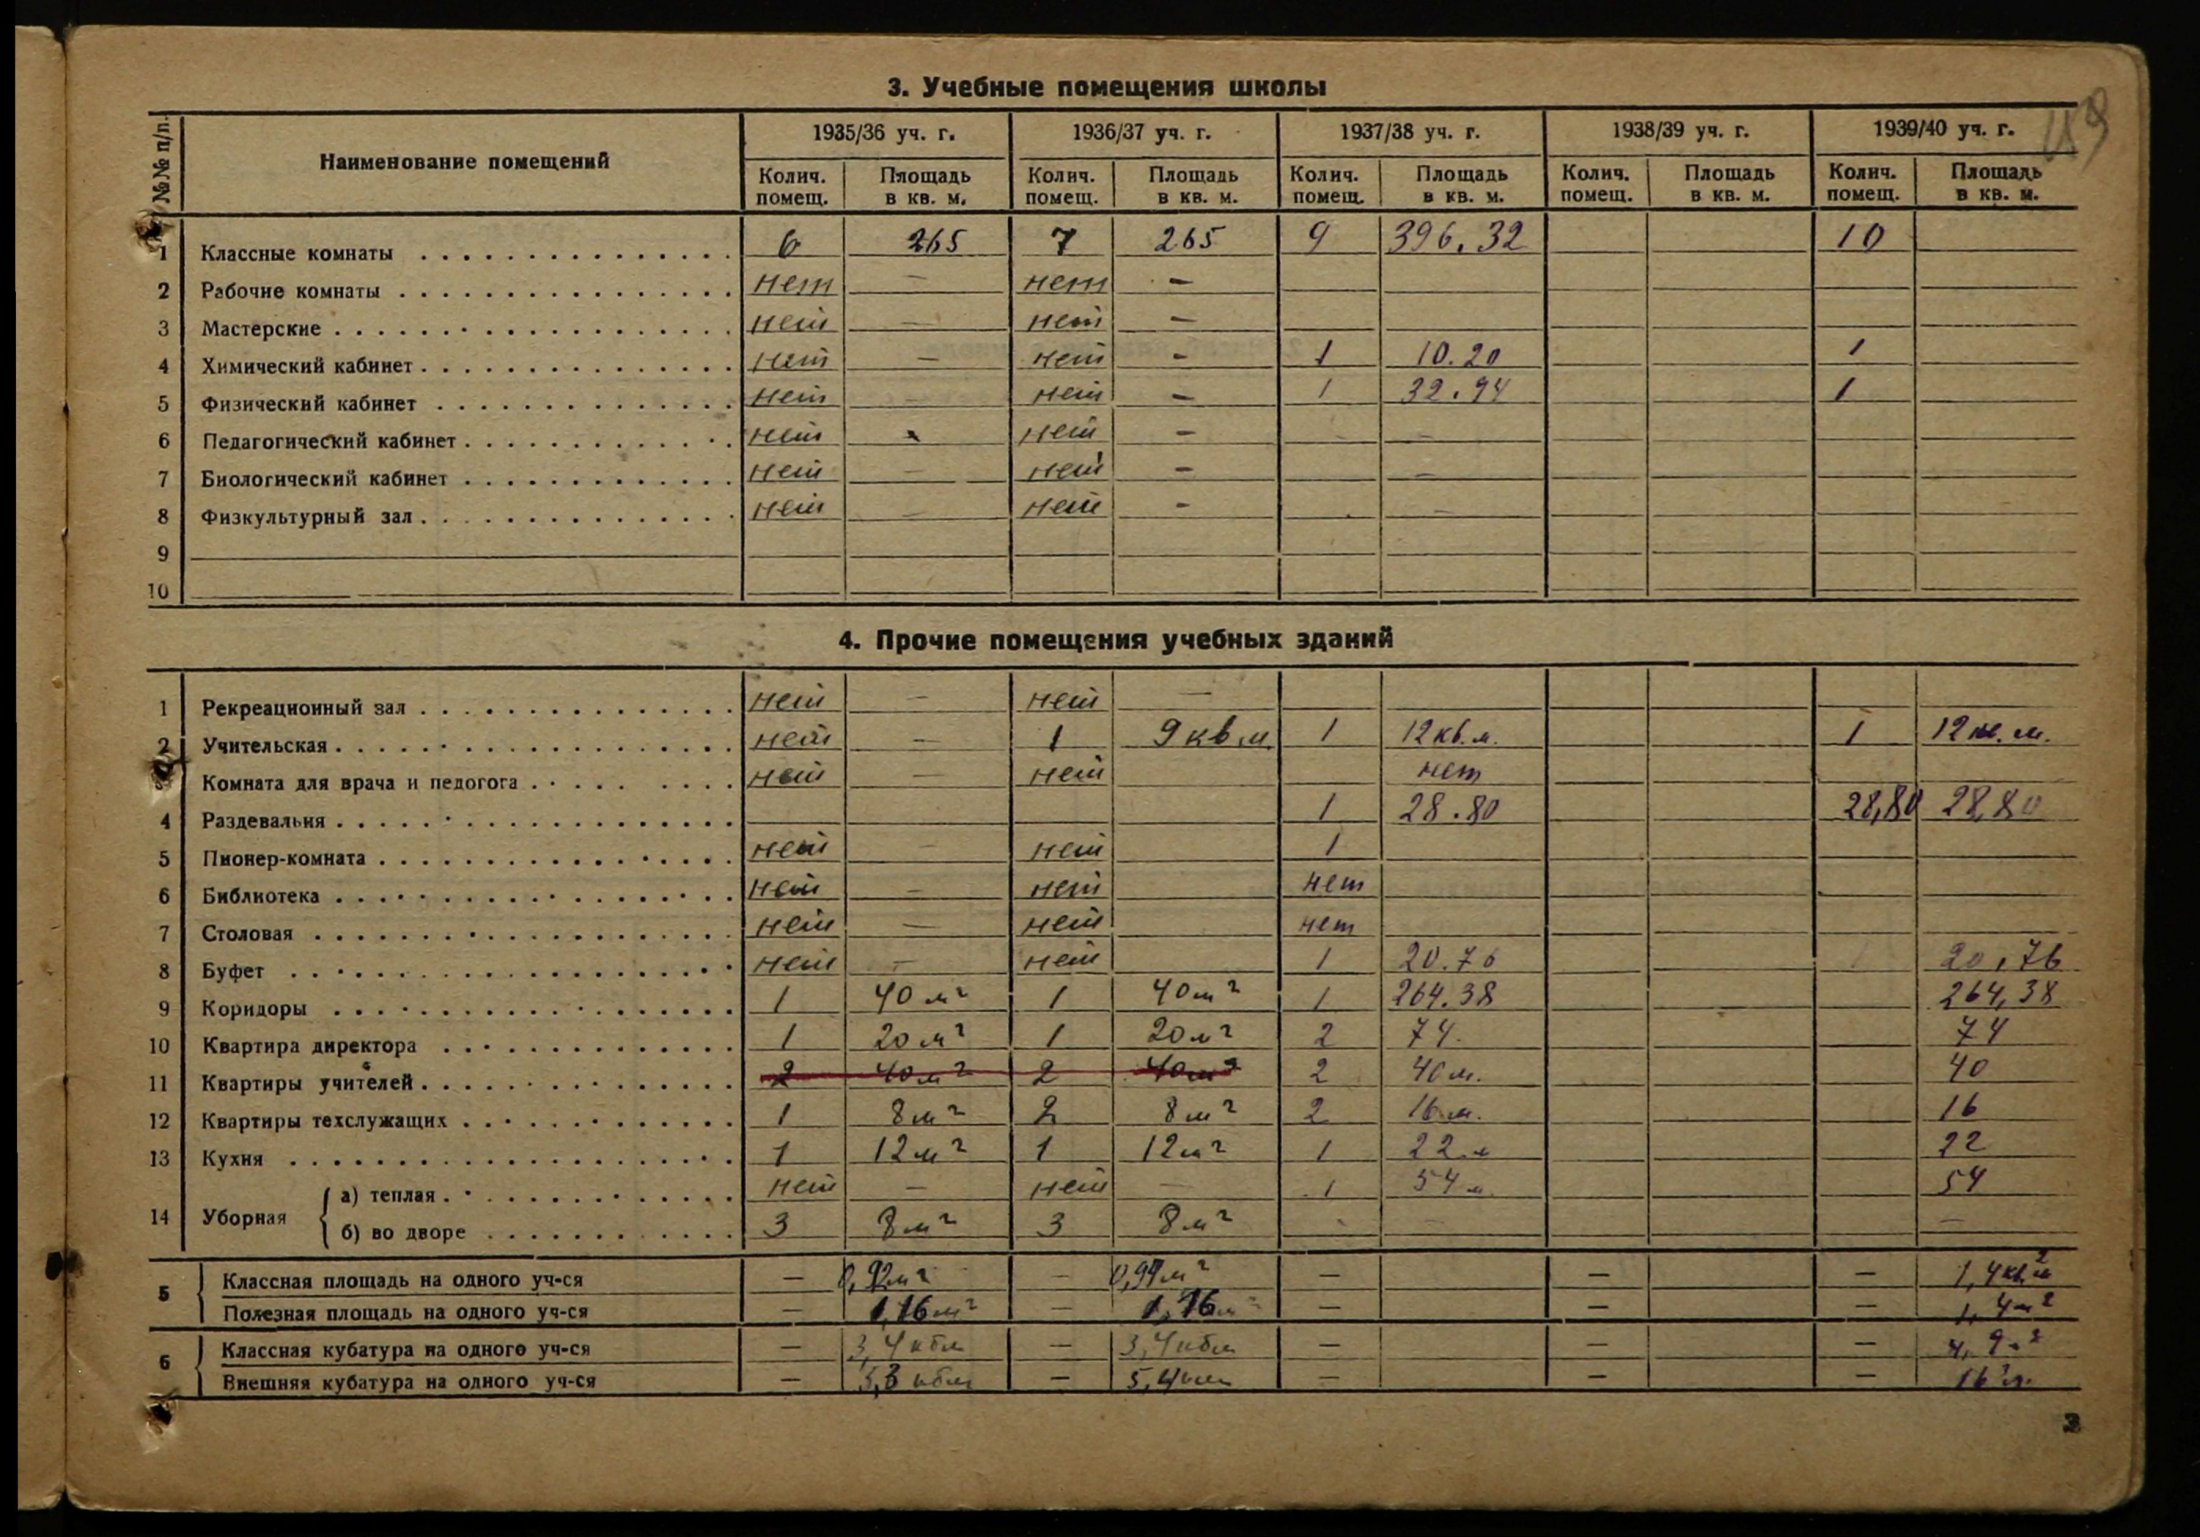 49
3. Учебные помещения школы
№№ п/п. Наименование помещений 1935/36 уч. г. 1936/37 уч. г. 1937/38 уч. г. 1938/39 уч. г. 1939/40 уч. г.
Колич. помещ. Площадь в кв. м. Колич. помещ. Площадь в кв. м. Колич. помещ. Площадь в кв. м. Колич. помещ. Площадь в кв. м. Колич. помещ. Площадь в кв. м.
1 Классные комнаты 6 265 7 265 9 396.32 10
2 Рабочие комнаты нет — нет —
3 Мастерские нет — нет —
4 Химический кабинет нет — нет — 1 10.20 1
5 Физический кабинет нет — нет — 1 32.94 1
6 Педагогический кабинет нет - нет — - —
7 Биологический кабинет нет — нет — —
8 Физкультурный зал нет — нет — - —
9
10
4. Прочие помещения учебных зданий
1 Рекреационный зал нет — нет —
2 Учительская нет — 1 9 кв м. 1 12 кв. м. 1 12 кв. м.
Комната для врача и педогога нет — нет нет
4 Раздевальня 1 28.80 28,80 28,80
5 Пионер-комната нет — нет 1
6 Библиотека нет — нет нет
7 Столовая нет — нет нет
8 Буфет нет — нет 1 20.76 20,76
9 Коридоры 1 40 м² 1 40 м² 1 264.38 264,38
10 Квартира директора 1 20 м² 1 20 м² 2 74. 74
11 Квартиры учителей 2 40 м² 2 40 м² 2 40 м. 40
12 Квартиры техслужащих 1 8 м² 2 8 м² 2 16 м. 16
13 Кухня 1 12 м² 1 12 м² 1 22 м 22
14 Уборная а) теплая нет — нет — 1 54 м. 54
б) во дворе 3 8 м² 3 8 м² - — —
5 Классная площадь на одного уч-ся — 0,92 м² — 0,94 м² — — — 1,4 кв. м²
Полезная площадь на одного уч-ся — 1,16 м² — 1,16 м² — — — 1,4 м²
6 Классная кубатура на одного уч-ся — 3,4 кбм — 3,4 кбм — — — 4,9 м²
Внешняя кубатура на одного уч-ся — 5,3 кбм — 5,4 кбм — — — 16 м³
3